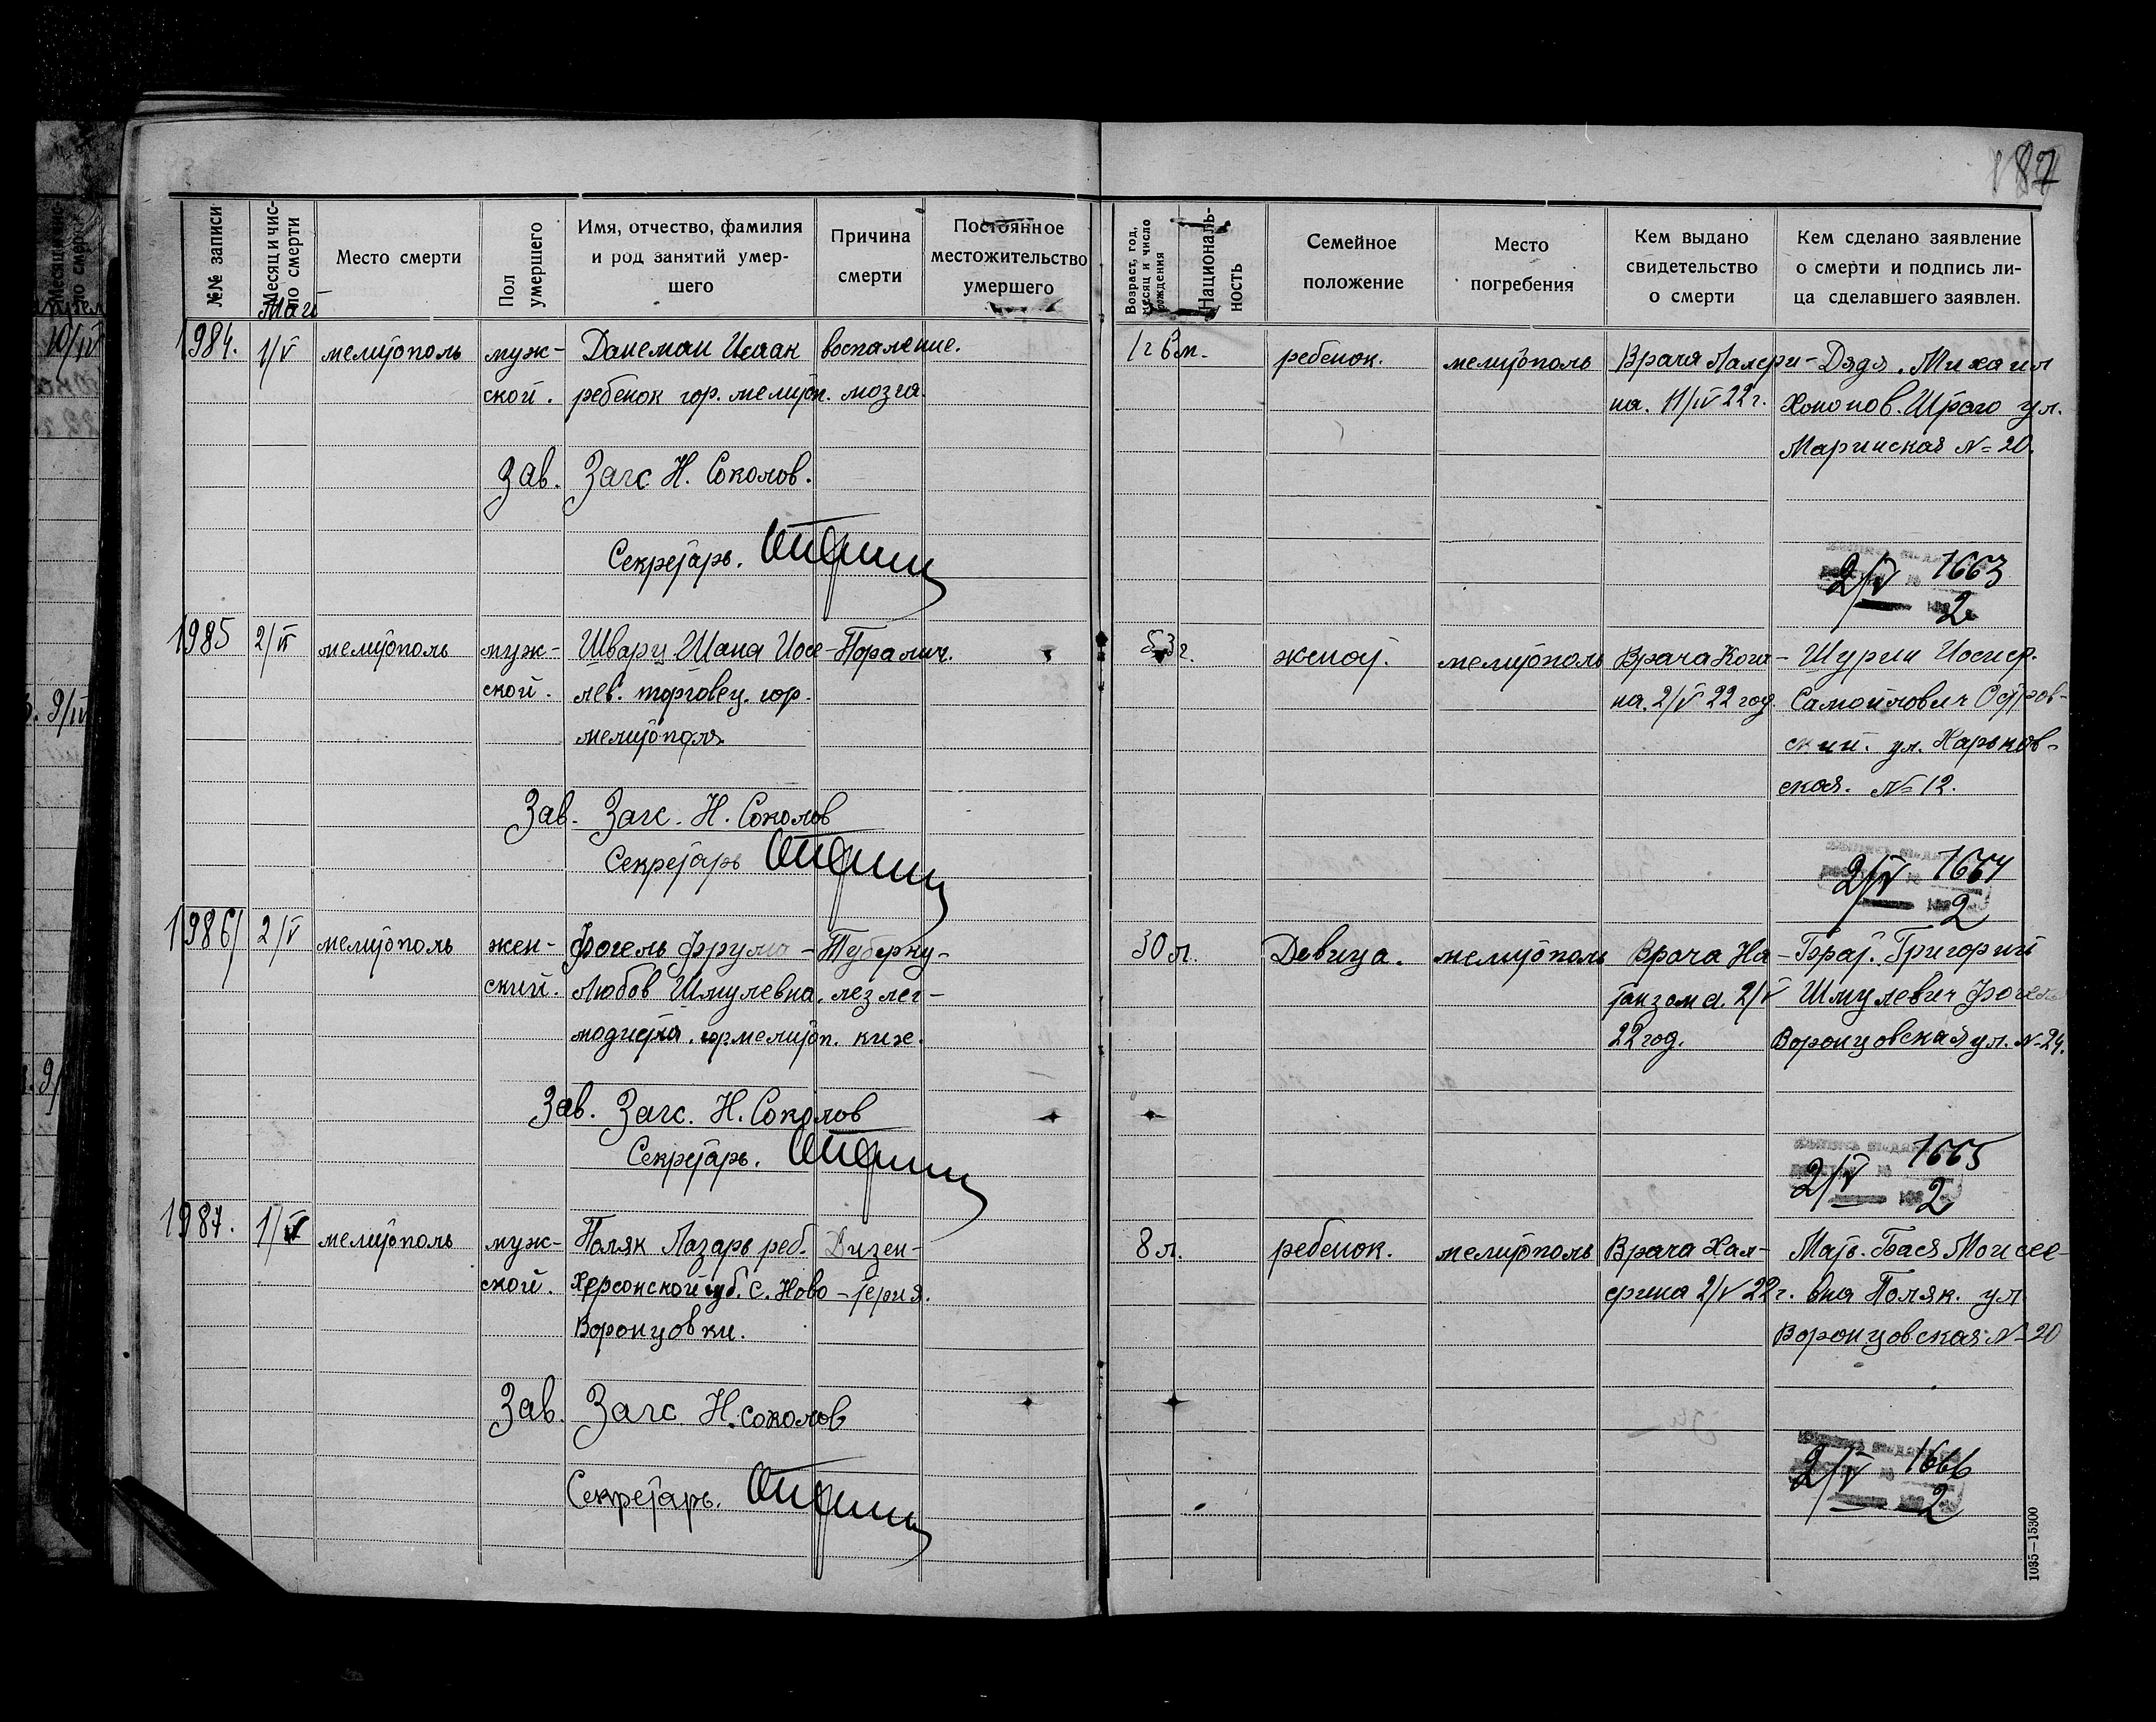 87
№№ записи
Месяц и чис-
ло смерти
Место смерти
Пол
умершего
Имя, отчество, фамилия
и род занятий умер-
шего
Причина
смерти
Постоянное
местожительство
умершего
Возраст, год,
месяц и число
рождения
Националь-
ность
Семейное
положение
Место
погребения
Кем выдано
свидетельство
о смерти
Кем сделано заявление
о смерти и подпись ли-
ца сделавшего заявлен.
Май
1984.
1/V
мелитополь
муж-
ской.
Данеман Исаак
ребенок гор. мелитоп.
воспаление.
мозга.
1 г 6 м.
ребенок.
мелитополь
Врача
на. 11/IV 22 г.
Дядя. Михаил
ул.
Мариинская № 20.
Зав. Загс Н. Соколов.
Секретарь.
2/V 1663
2
1985
2/V
мелитополь
муж-
ской.
Шварц Шана Иосе-
лев. торговец. гор.
мелитополя.
Поралич.
53 г.
женат.
мелитополь
Врача Кога-
на. 2/V 22 год.
Шурин Иосиф.
Самойлович Остров-
ский. ул. Харьков-
ская. № 12.
Зав. Загс. Н. Соколов
Секретарь
2/V 1664
2
1986
2/V
мелитополь
жен-
ский.
Фогель Фрума-
Любов Шмулевна.
модистка. гор мелитоп.
Туберку-
лез лег-
ких.
30 л.
Девица.
мелитополь
Врача На-
танзона. 2/V
22 год.
Брат. Григорий
Шмулевич Фогель
Воронцовская ул. № 24.
Зав. Загс. Н. Соколов
Секретарь.
2/V 1665
2
1987.
1/V
мелитополь
муж-
ской.
Поляк Лазарь реб.
Херсонской губ. с. Ново-
Воронцовки.
Дизен-
терия.
8 л.
ребенок.
мелитополь
Врача Хал-
2/V 22 г.
Мать. Бася Моисее-
вна Поляк. ул.
Воронцовская № 20
Зав. Загс Н. Соколов
Секретарь.
2/V 1666
2
1035—15300